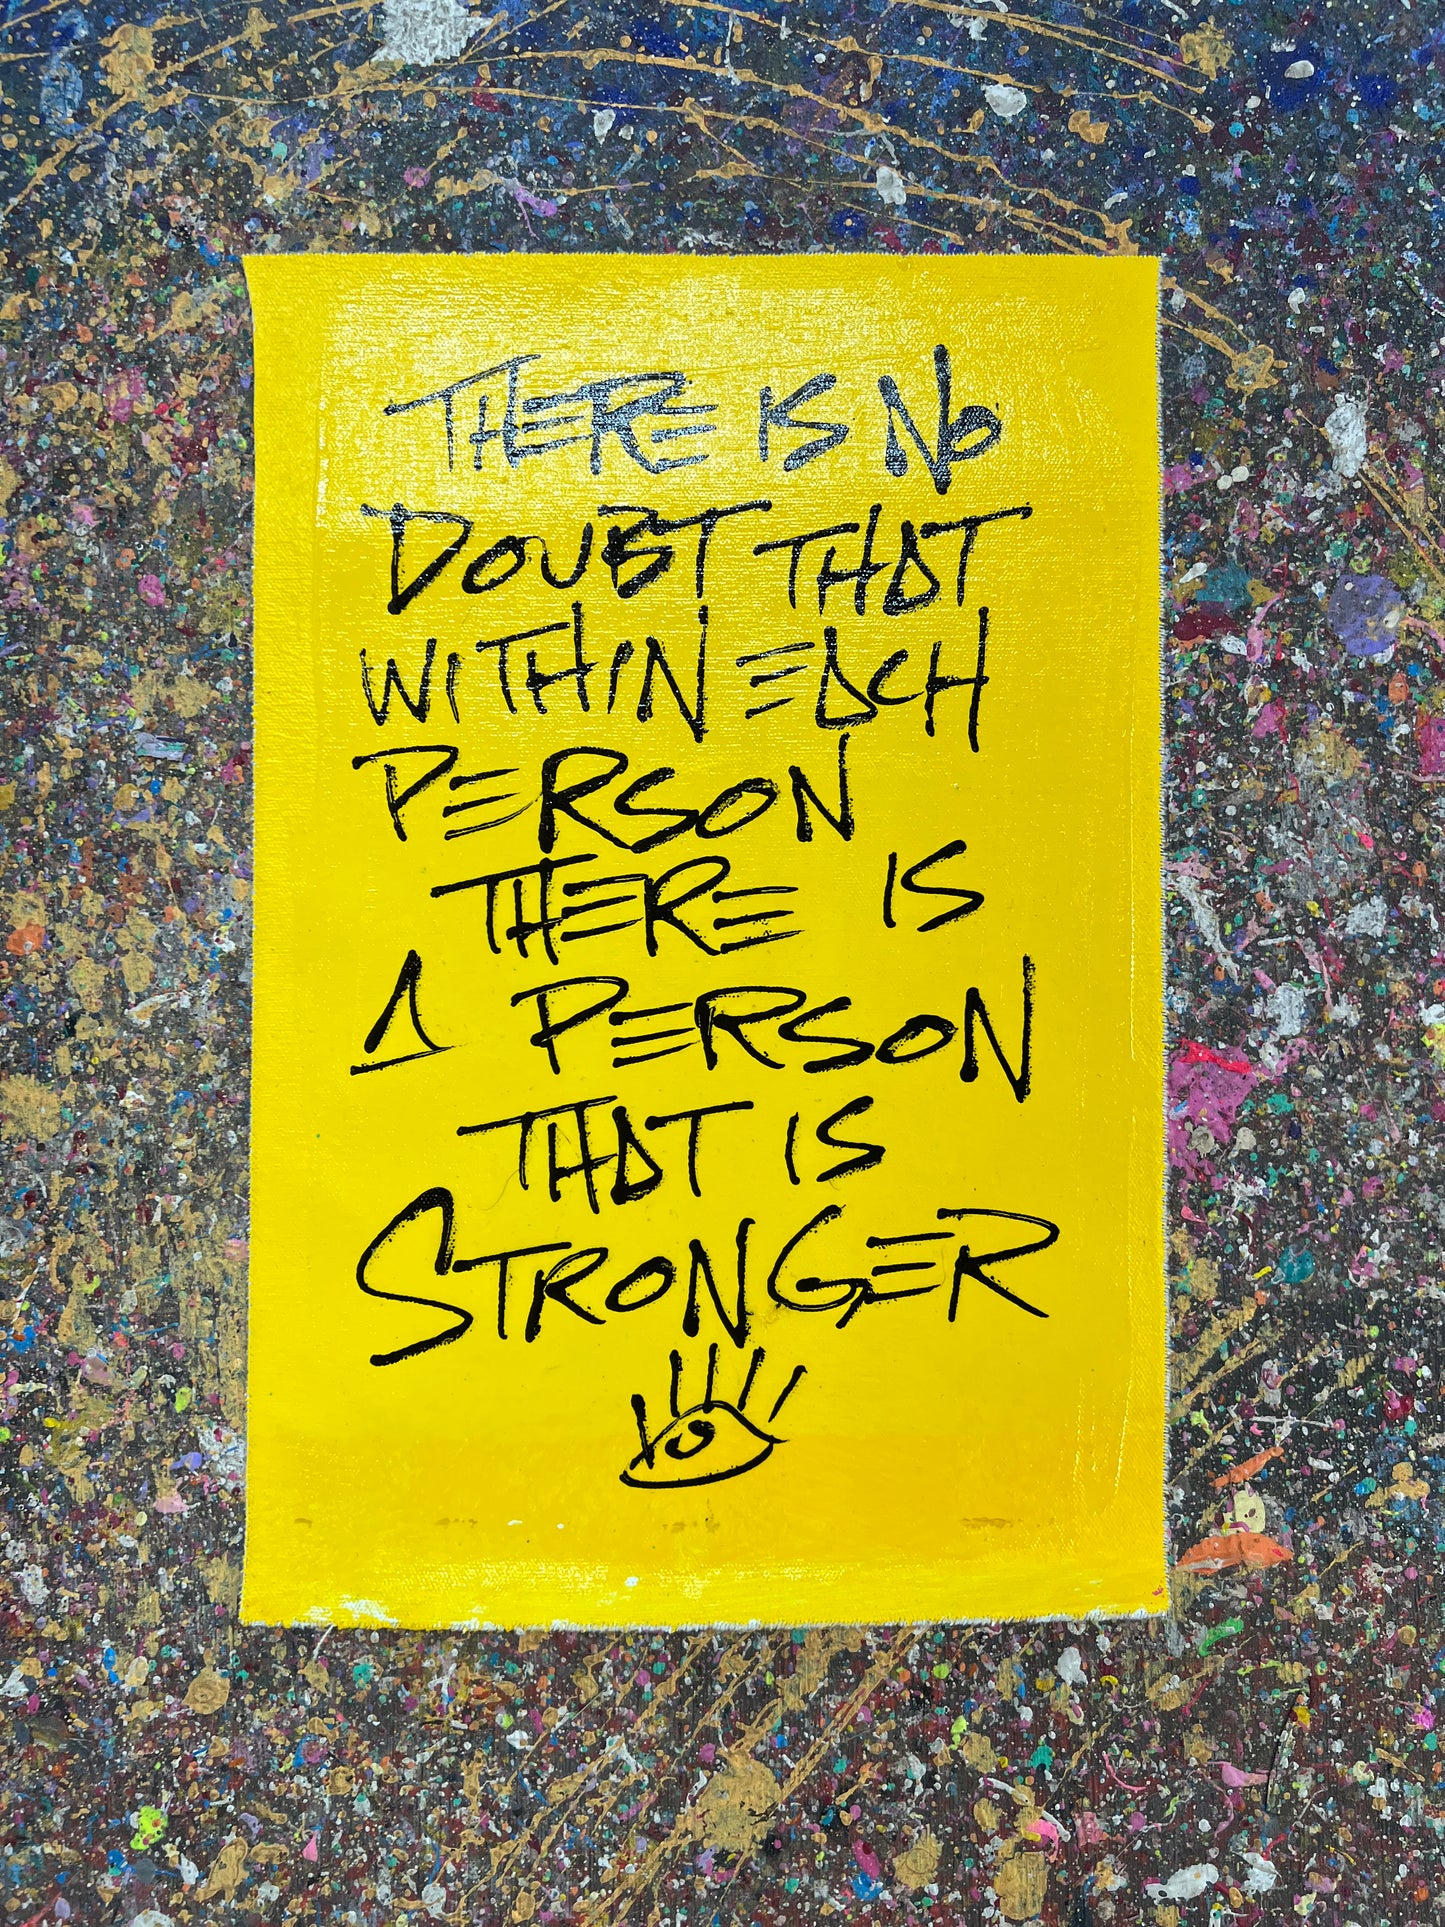 THERE IS NO
DOUBT THAT
WITHIN EACH
PERSON
THERE IS
A PERSON
THAT IS
STRONGER